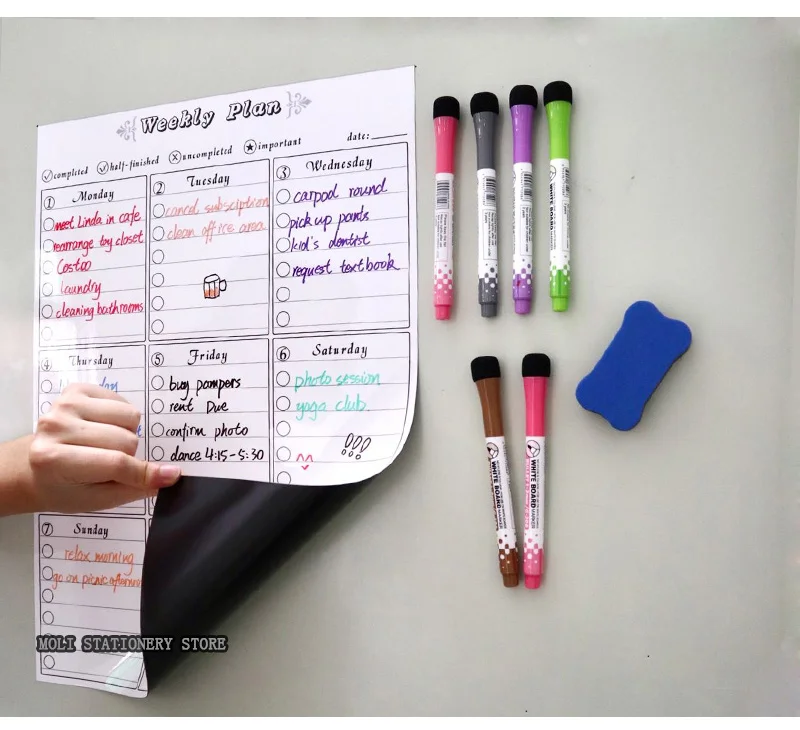 Weekly Plan
completed half-finished uncompleted important date:
1 Monday
meet Linda in cafe
rearrange toy closet
Costco
laundry
cleaning bathrooms
2 Tuesday
cancel subscription
clean office area
3 Wednesday
carpool round
pick up pants
kid's dentist
request textbook
4 Thursday
5 Friday
buy pampers
rent Due
confirm photo
dance 4:15-5:30
6 Saturday
photo session
yoga club
!!!
7 Sunday
relax morning
go on picnic afternoon
WHITE BOARD
WHITE BOARD MARKER
WHITE BOARD MARKER
MOLI STATIONERY STORE